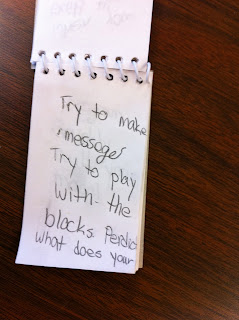 Try to make
messages
Try to play
with the
blocks. Perdict
what does your